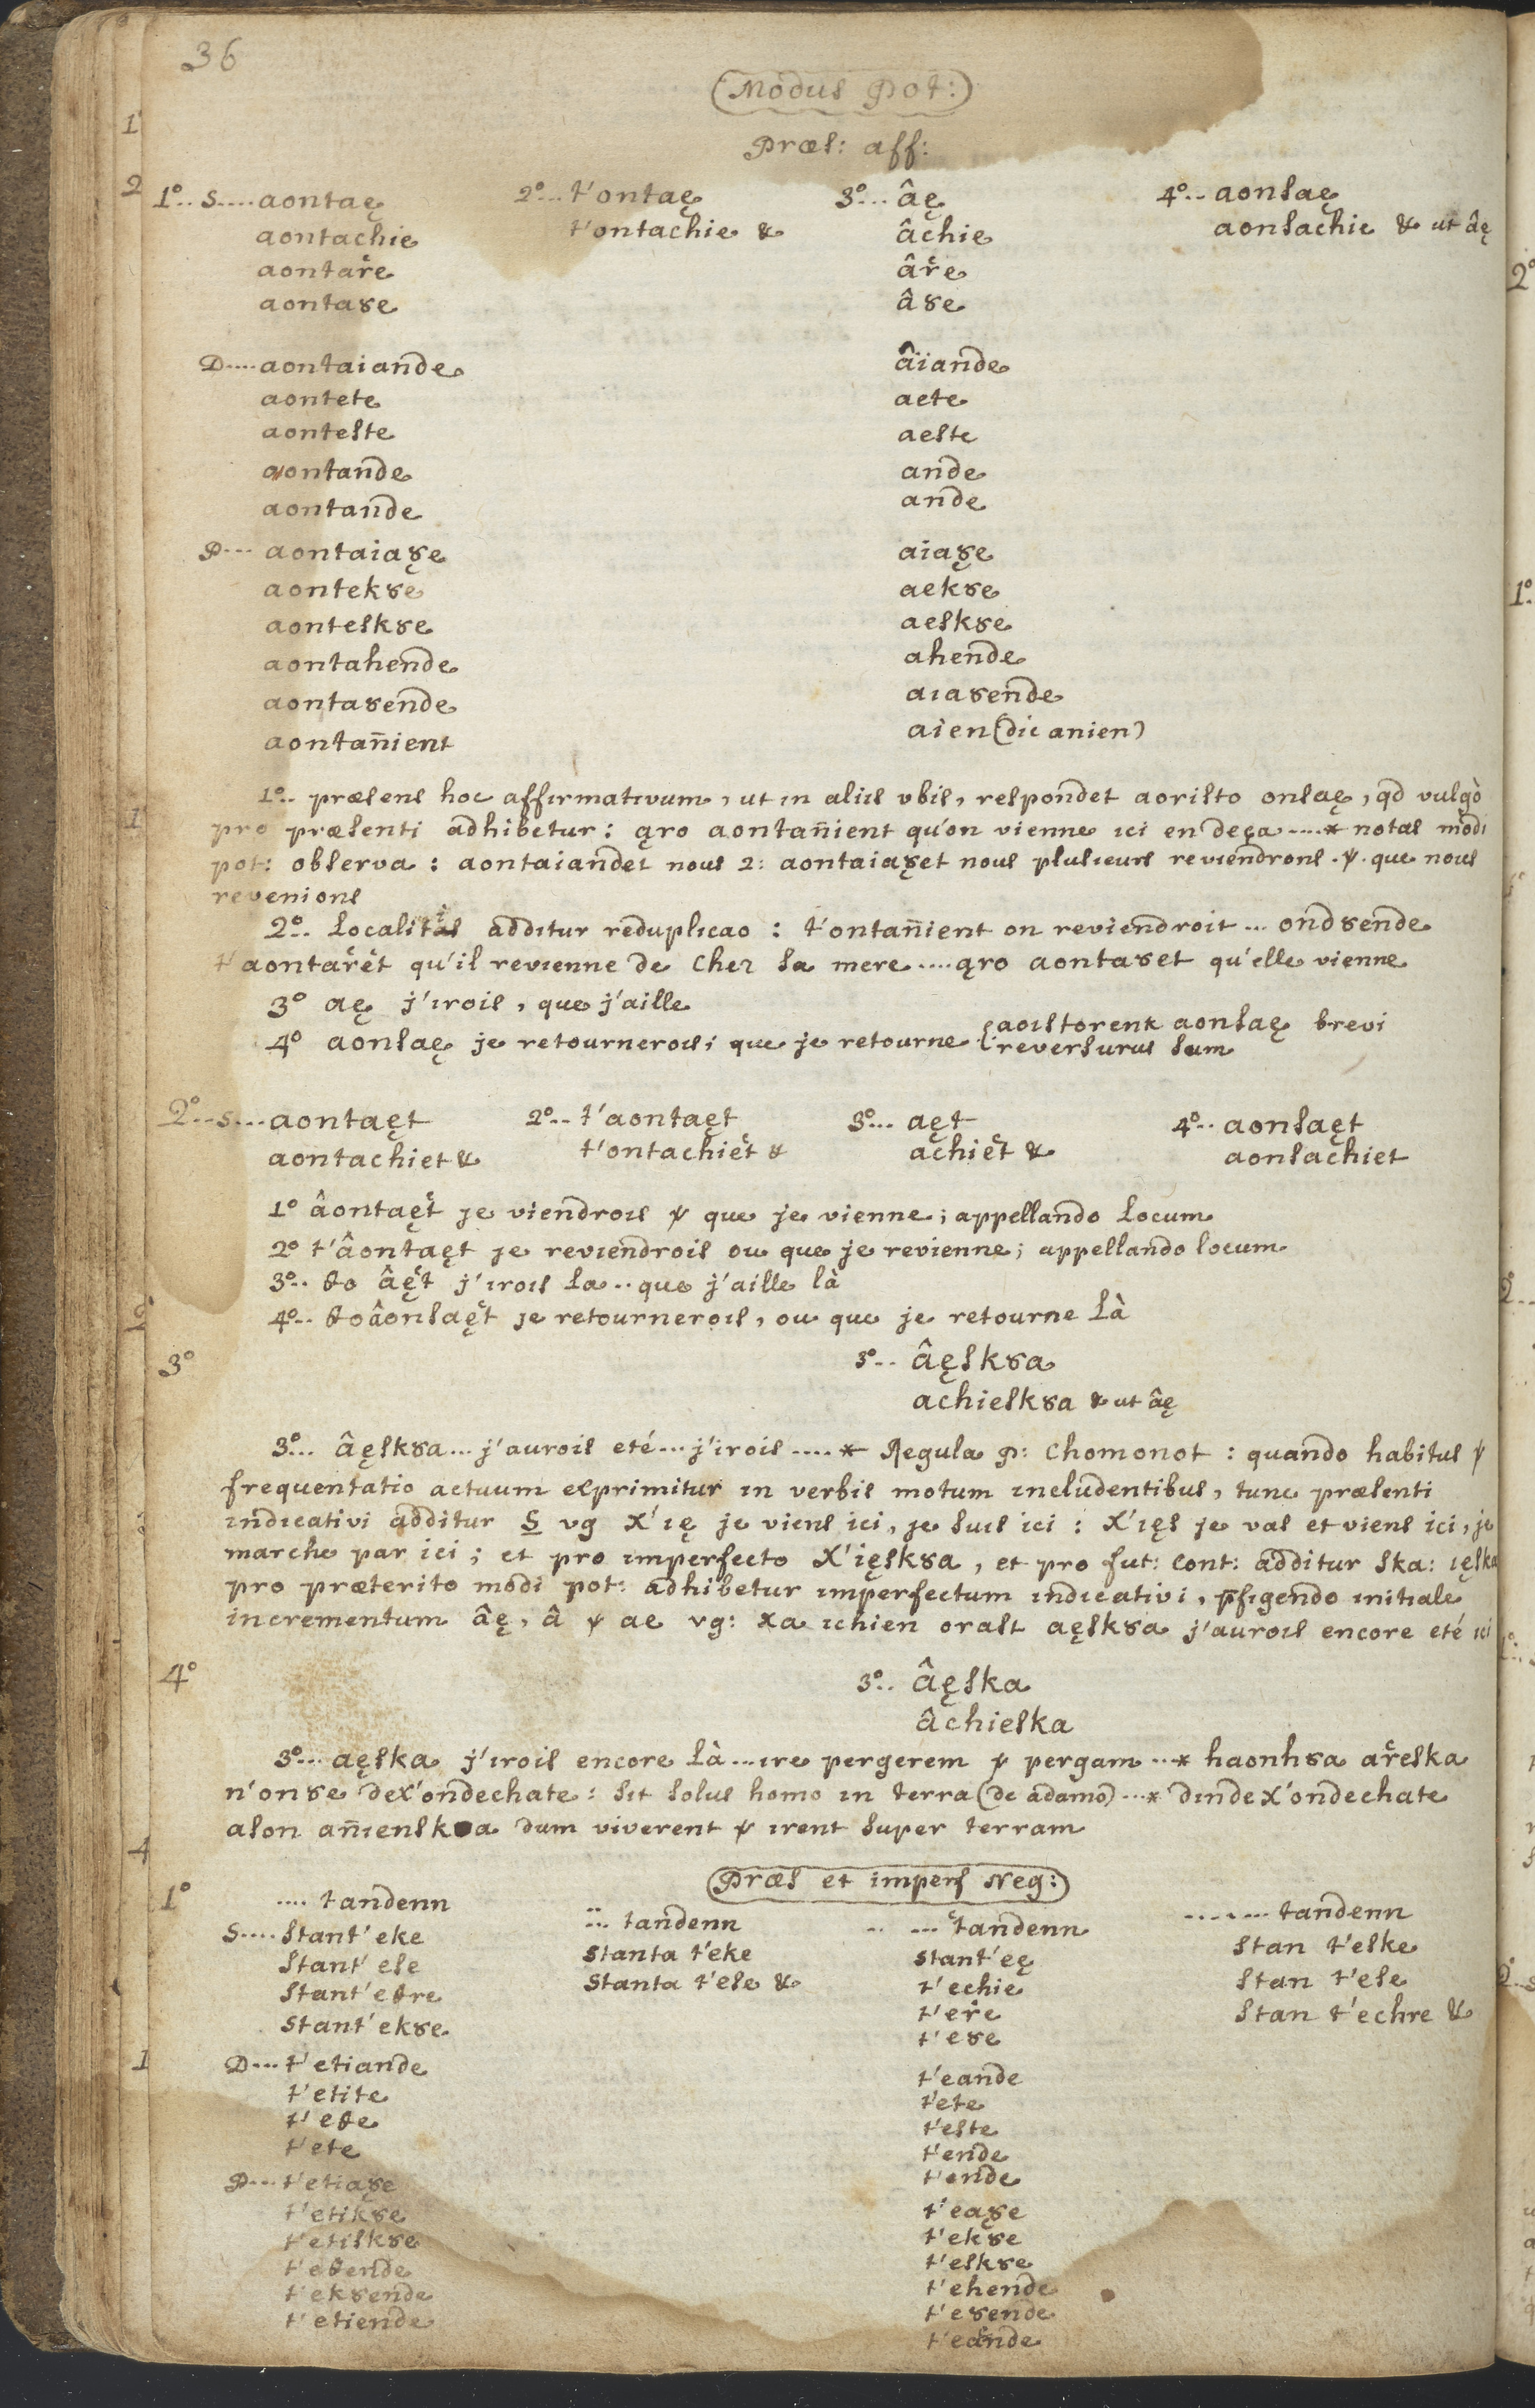 36
(Modus Pot:)
Præs: aff:
1°.. S.... aontaę 2°... t'ontaę 3°... âę 4°.. aonsaę
aontachie t'ontachie & âchie aonsachie & ut âę
aontaře âře
aontaȣe âȣe
D.... aontaiande âïande
aontete aete
aonteste aeste
aontande ande
aontande ande
P... aontaiaȣe aiaȣe
aontekȣe aekȣe
aonteskȣe aeskȣe
aontahende ahende
aontaȣende aıaȣende
aontan̄ient aien (dic anien)
1°.. præsens hoc affirmativum, ut in aliis vbis, respondet aoristo onsaę, qd vulgò
pro præsenti adhibetur: q̨ro aontan̄ient qu'on vienne ici en deça ....* notas modi
pot: observa: aontaiandet nous 2: aontaiaȣet nous plusieurs reviendrons . ꝩ . que nous
revenions
2°.. Localitis additur reduplicao: t'ontan̄ient on reviendroit ... ondȣende
t'aontařet qu'il revienne de chez sa mere .... q̨ro aontaȣet qu'elle vienne
3° aę j'irois, que j'aille
4° aonsaę je retournerois; que je retourne { aoistorenk aonsaę brevi
reversurus sum
2°.. s... aontaęt 2°.. t'aontaęt 3°... aęt 4°.. aonsaęt
aontachiet & t'ontachiet & achiet & aonsachiet
1° âontaęt je viendrois ꝩ que je vienne; appellando Locum
2° t'âontaęt je reviendrois ou que je revienne; appellando locum
3°.. ꞛo âęt j'irois La .. que j'aille là
4°.. ꞛo âonsaęt je retournerois, ou que je retourne Là
3° 3°.. âęskȣa
achieskȣa & ut âę
3°... âęskȣa ... j'aurois eté ... j'irois ....* Regula P: Chomonot: quando habitus ꝩ
frequentatio actuum exprimitur in verbis motum includentibus, tunc præsenti
indicativi additur S vg χ'ıę je viens ici, je suis ici: χ'ıęs je vas et viens ici, je
marche par ici; et pro imperfecto χ'ięskȣa, et pro fut: cont: additur ska: ıęska
pro præterito modi pot: adhibetur imperfectum indicativi, p̄figendo initiale
incrementum âę, â ꝩ ae vg: χa ichien orast aęskȣa j'aurois encore eté ici
4° 3°.. âęska
âchieska
3°... aęska j'irois encore Là ... ire pergerem ꝩ pergam ...* haonhȣa ařeska
n'onȣe deχ'ondechate: sit solus homo in terra (de adamo) ...* dindeχ'ondechate
ason an̄iensk a dum viverent ꝩ irent super terram
(Præs et imperf Neg:)
1° .... tandenn ... tandenn ... tandenn ....... tandenn
S.... Stant' eke Stanta t'eke Stant'eę Stan t'eske
Stant' ese Stanta t'ese & t'echie Stan t'ese
Stant' eꞛre t'eře Stan t'echre &
Stant' ekȣe t'eȣe
D... t'etiande t'eande
t'etite t'ete
t'eꞛe t'este
t'ete t'ende
t'ende
P... t'etiaȣe t'eaȣe
t'etikȣe t'ekȣe
t'etiskȣe t'eskȣe
t'eꞛende t'ehende
t'ekȣende t'eȣende
t'etiende t'eande